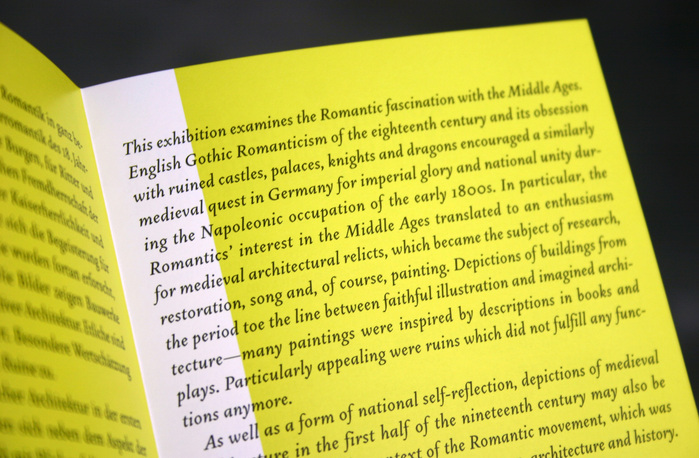 Romantik in ganz be-
rromantik des 18. Jahr-
Burgen, für Ritter und
hen Fremdherrschaft der
Kaiserherrlichkeit und
sich die Begeisterung für
wurden fortan erforscht,
Bilder zeigen Bauwerke
Architektur. Etliche sind
Besondere Wertschätzung
Architektur in der ersten
sich neben dem Aspekt der
This exhibition examines the Romantic fascination with the Middle Ages.
English Gothic Romanticism of the eighteenth century and its obsession
with ruined castles, palaces, knights and dragons encouraged a similarly
medieval quest in Germany for imperial glory and national unity dur-
ing the Napoleonic occupation of the early 1800s. In particular, the
Romantics’ interest in the Middle Ages translated to an enthusiasm
for medieval architectural relicts, which became the subject of research,
restoration, song and, of course, painting. Depictions of buildings from
the period toe the line between faithful illustration and imagined archi-
tecture—many paintings were inspired by descriptions in books and
plays. Particularly appealing were ruins which did not fulfill any func-
tions anymore.
As well as a form of national self-reflection, depictions of medieval
ture in the first half of the nineteenth century may also be
text of the Romantic movement, which was
architecture and history.